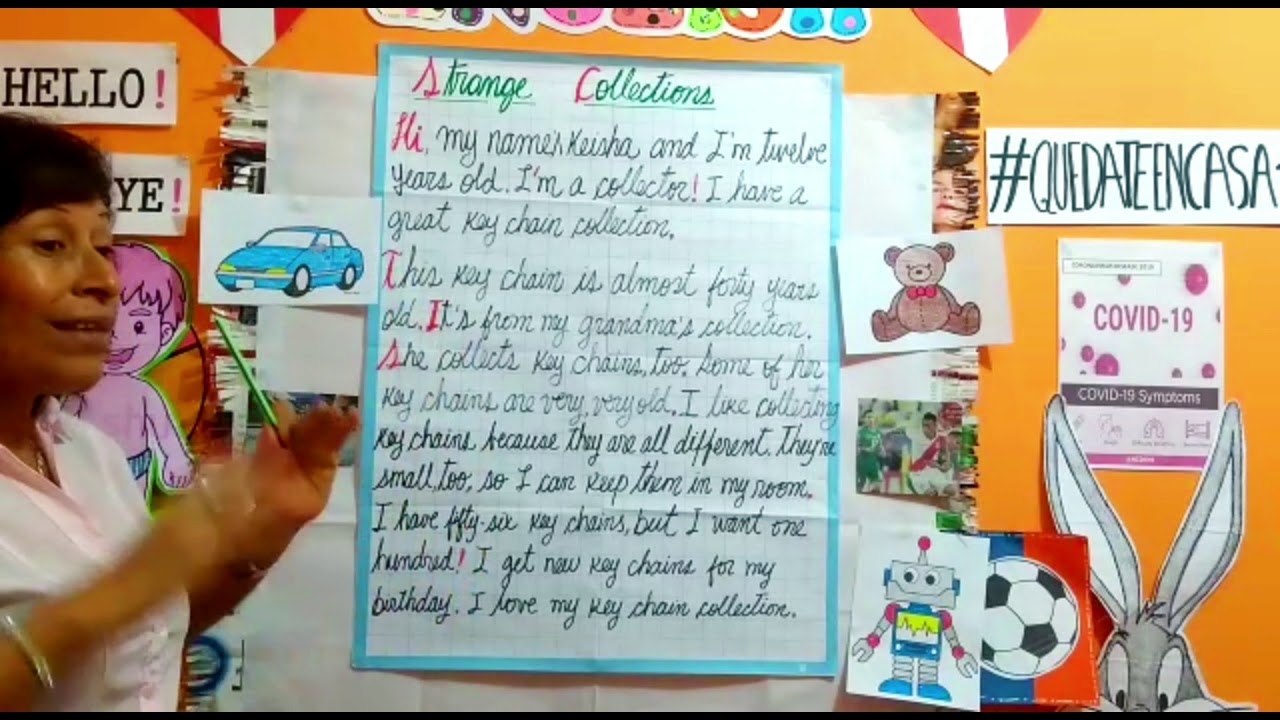 HELLO!
YE!
Strange Collections
Hi, my name's Keisha and I'm twelve
years old. I'm a collector! I have a
great key chain collection.
This key chain is almost forty years
old. It's from my grandma's collection.
She collects key chains, too. Some of her
key chains are very, very old. I like collecting
key chains because they are all different. They're
small, too, so I can keep them in my room.
I have fifty-six key chains, but I want one
hundred! I get new key chains for my
birthday. I love my key chain collection.
#QUEDATEENCASA
COVID-19
COVID-19 Symptoms